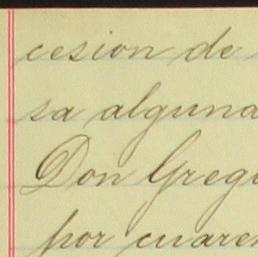 cesion de
sa alguna
Don Grego
por cuaren